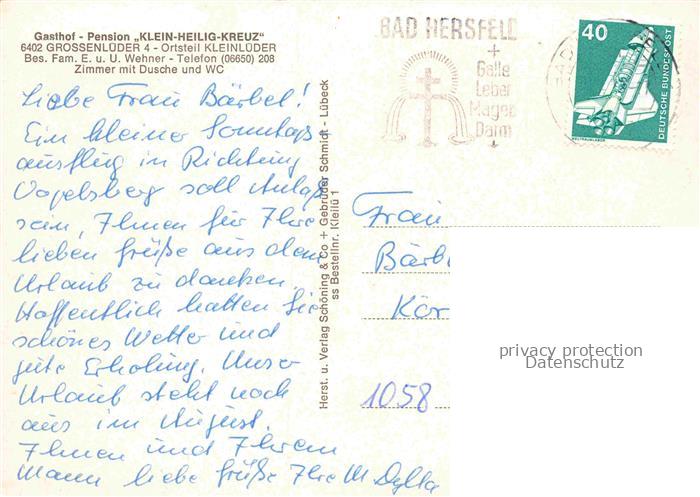 Gasthof - Pension „KLEIN-HEILIG-KREUZ"
6402 GROSSENLÜDER 4 - Ortsteil KLEINLÜDER
Bes. Fam. E. u. U. Wehner - Telefon (06650) 208
Zimmer mit Dusche und WC
Liebe Frau Bärbel!
Ein kleiner Sonntags
ausflug in Richtung
Vogelsberg soll Anlaß
sein, Ihnen für Ihre
lieben Grüße aus dem
Urlaub zu danken.
Hoffentlich hatten Sie
schönes Wetter und
gute Erholung. Unser
Urlaub steht noch
aus im August.
Ihnen und Ihrem
Mann liebe Grüße Ihre M
Herst. u. Verlag Schöning & Co + Gebrüder Schmidt - Lübeck
ss Bestellnr. Kleilü 1
BAD HERSFELD
+
Galle
Leber
Magen
Darm
+
40
DEUTSCHE BUNDESPOST
WELTRAUMLABOR
Frau
Bärb
Kör
1058
privacy protection
Datenschutz